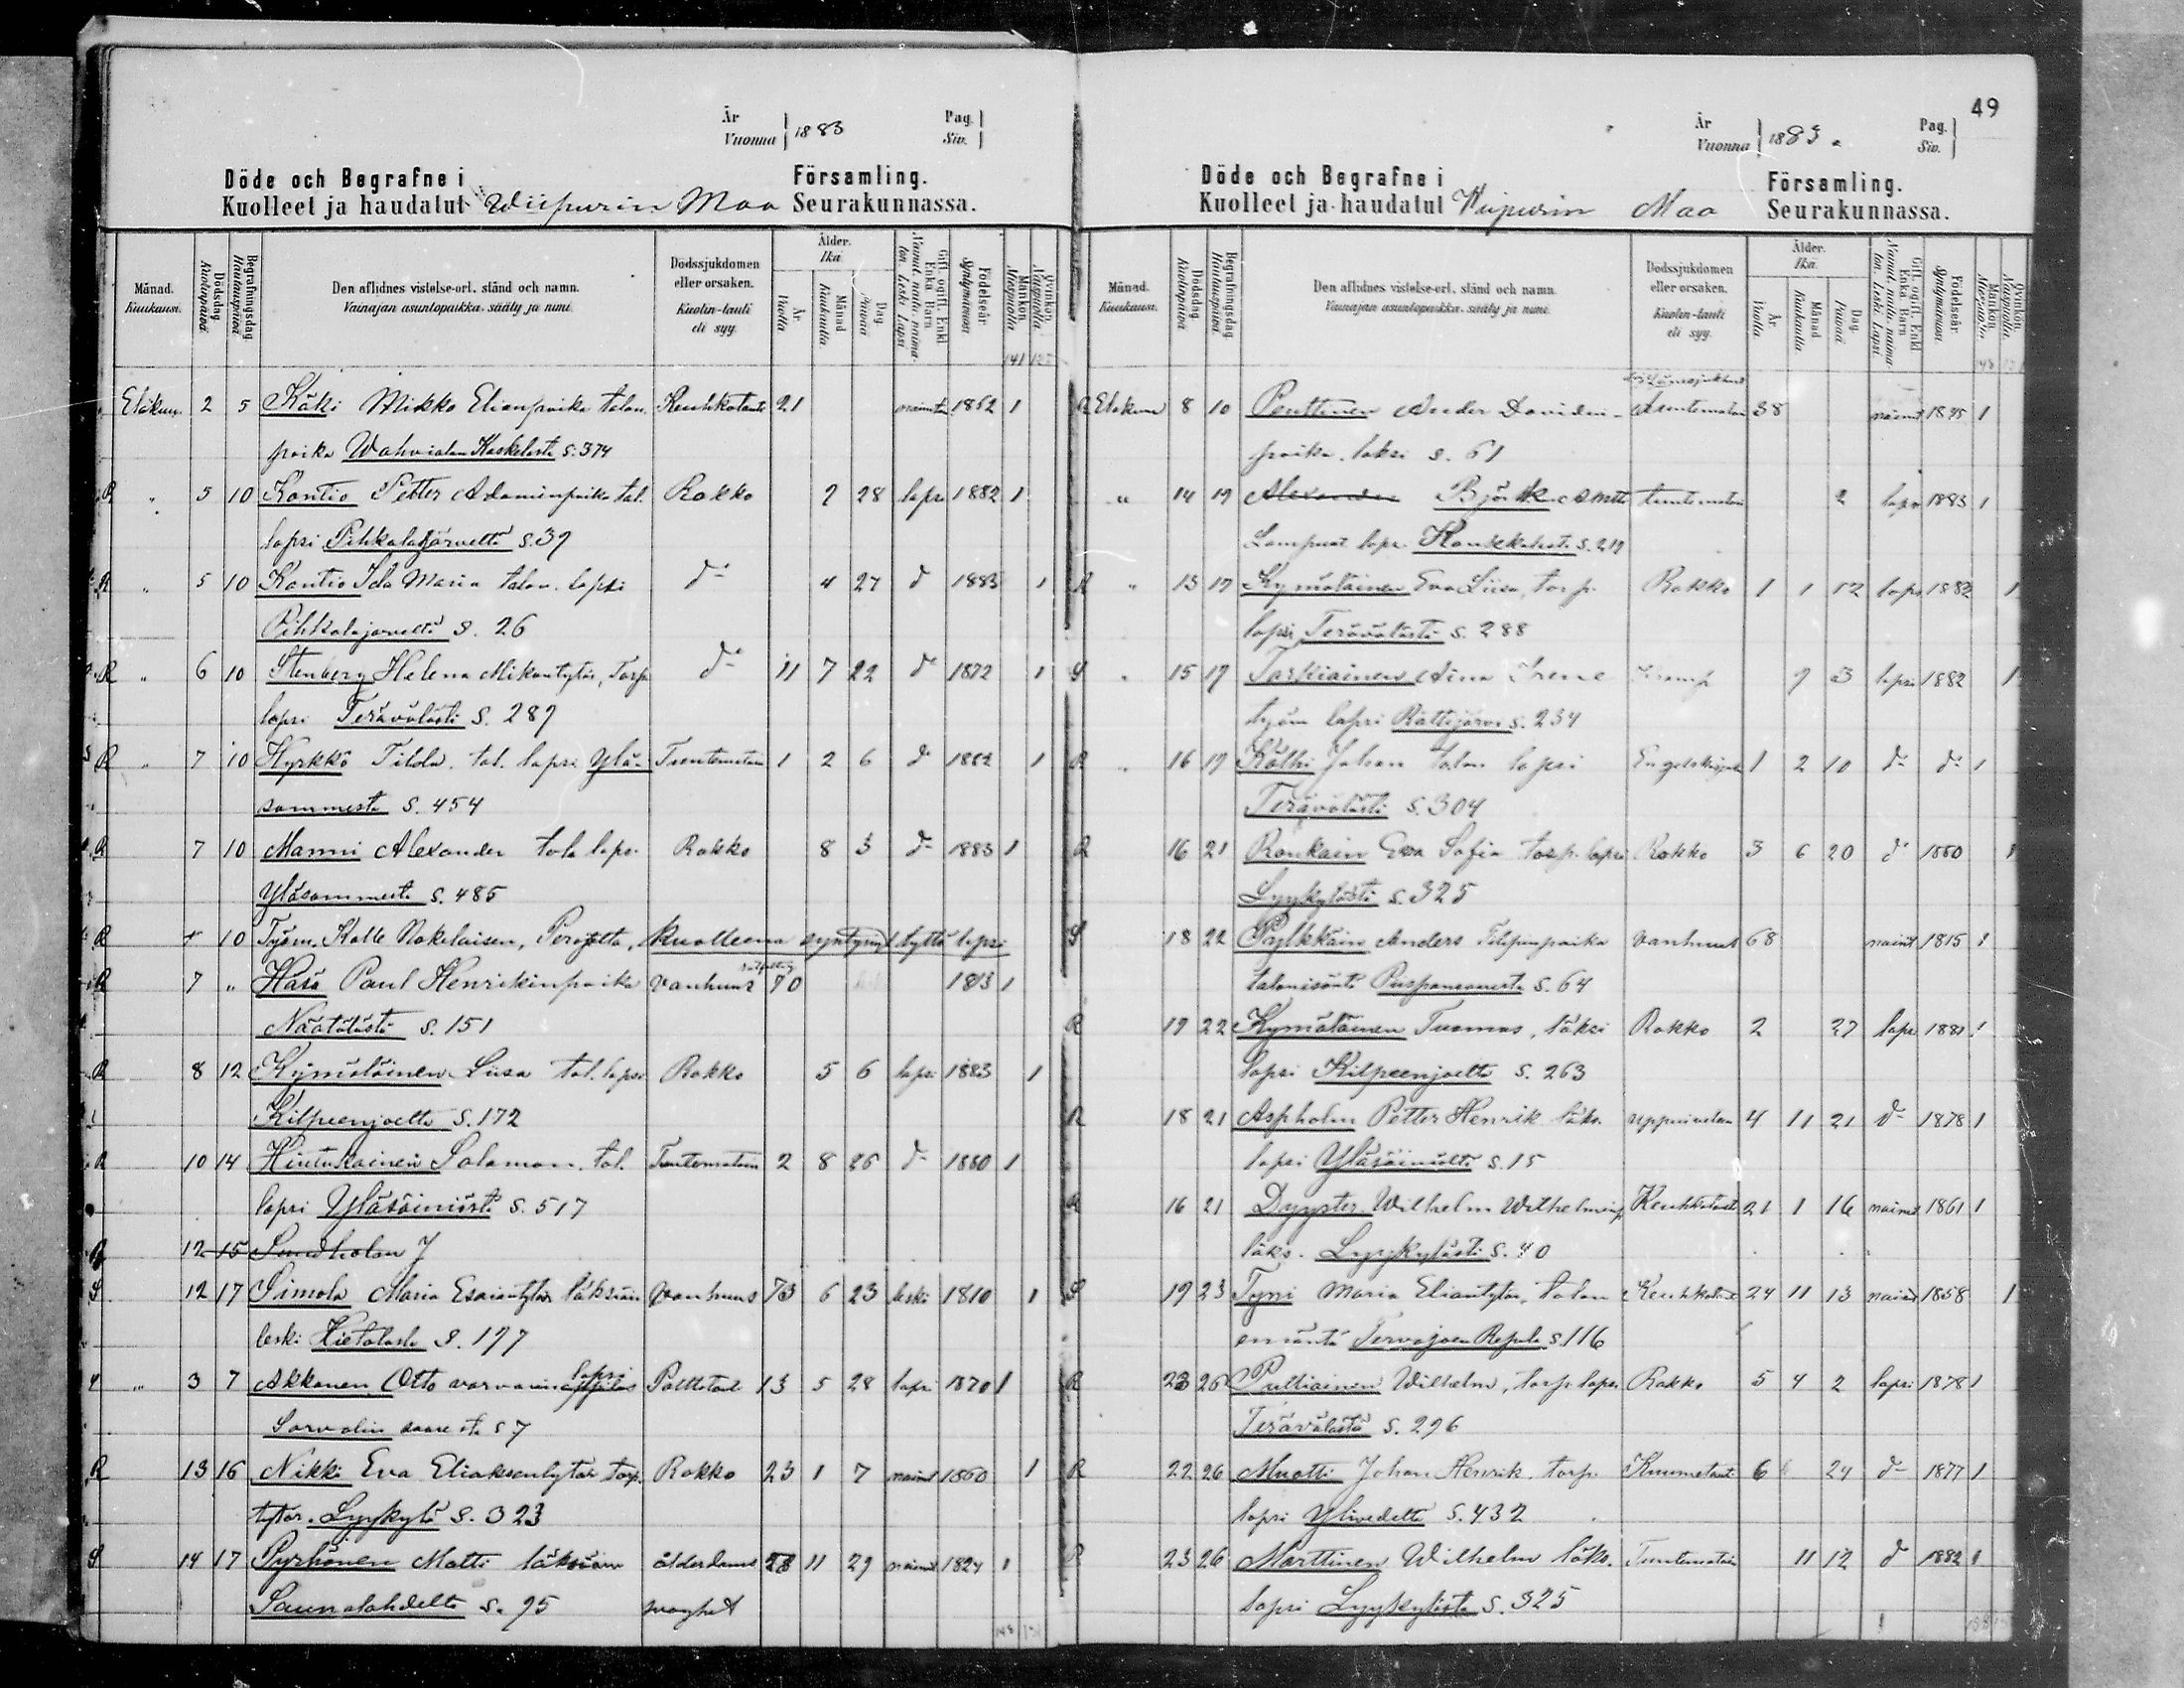 År
Vuonna 1883
Pag.
Siv.
Döde och Begrafne i Församling.
Kuolleet ja haudatut Wiipurin Maa Seurakunnassa.
Månad.
Kuukausi.
Dödsdag.
Kuolinpäivä.
Begrafningsdag
Hautauspäivä.
Den aflidnes vistelse-ort, stånd och namn.
Vainajan asuntopaikka, sääty ja nimi.
Dödssjukdomen
eller orsaken.
Kuolin-tauti
eli syy.
Ålder.
Ikä.
År.
Vuotta
Månad
Kuukautta
Dag.
Päivää
Gift, ogift, Enkl.
Enka, Barn
Födelseår.
Syntymävuosi
Mankön.
Miespuolia
Qvinkön.
Naispuolia.
141
Eläkuu 2 5 Käki Mikko Elianpoika talon. Keuhkotauti 21 1862 1
poika Wahvialan Kaskelasta S. 374
R " 5 10 Kontio Petter Adaminpoika tal. Rokko 2 28 lapsi 1882 1
lapsi Pihkalajärveltä S. 37
R " 5 10 Kontio Ida Maria talon. lapsi do 4 27 do 1883 1
Pihkalajarveltä S. 26
R " 6 10 Stenberg Helena Mikontytär, Torp. do 11 7 22 do 1872 1
lapsi Terävälästä S. 287
R " 7 10 Hyrkkö Tilda. tal. lapsi Ylä- Tuntematon 1 2 6 do 1882 1
sommesta S. 454
R 7 10 Manni Alexander tal. laps. Rokko 8 3 do 1883 1
Yläsommesta S. 485
R 10 Työm. Kalle Nokelaisen, Perojolta, kuolleena syntynyt tyttö lapsi
R 7 " Hasa Paul Henrikinpoika vanhuus 70 1813 1
Näätälästä S. 151
R 8 12 Kymäläinen Liisa tal. lapsi Rokko 5 6 lapsi 1883 1
Kilpeenjoelta S. 172
R 10 14 Hintukainen Salamon. tal. Tuntematon 2 8 26 do 1880 1
lapsi Yläsäiniöstä S. 517
R 12 15 Sundholm J
S 12 17 Simola Maria Esaiantytär läksiän vanhuus 73 6 23 leski 1810 1
leski Hietalasta S. 177
" 3 7 Akkanen Otto lapsi Polttotauti 13 5 28 lapsi 1870 1
Sorvalin saaresta S 7
R 13 16 Nikki Eva Eliaksentytär torp. Rokko 23 1 7 1860 1
tytär. Lyykylä S. 323
S 14 17 Pyrhönen Matti läksiän ålderdoms 11 29 1824 1
Saunalahdelta S. 95 svaghet
49
År
Vuonna 1883.
Pag.
Siv.
Döde och Begrafne i Församling.
Kuolleet ja haudatut Wiipurin Maa Seurakunnassa.
Månad.
Kuukausi.
Dödsdag.
Kuolinpäivä.
Begrafningsdag.
Hautauspäivä.
Den aflidnes vistelse-ort, stånd och namn.
Vainajan asuntopaikka, sääty ja nimi.
Dödssjukdomen
eller orsaken.
Kuolin-tauti
eli syy.
Ålder.
Ikä.
År.
Vuotta
Månad
Kuukautta
Dag.
Päivää
Gift, ogift, Enkl.
Enka, Barn
Födelseår.
Syntymävuosi.
Mankön.
Qvinkön.
Naispuolia.
R Elokuu 8 10 Penttinen Ander Davidin- tuntematon 38 1845 1
poika. S. 61
" 14 19 Alexander Björk Antti tuntematon 2 lapsi 1883 1
laps. S. 219
R " 13 17 Kymäläinen Eva Liisa, torp. Rokko 1 1 12 laps 1882 1
lapsi Terävälästä S. 288
S " 15 17 Tarkiainen Aina Irene Kramp 9 3 lapsi 1882 1
työm lapsi Rättijärvi S. 234
R " 16 19 Kälhi Johan talon lapsi 1 2 10 do do 1
Terävälästä S. 304
R 16 21 Ronkain Eva Sofia torp. lapsi Rokko 3 6 20 do 1880 1
Lyykylästä S. 325
S 18 22 Pylkkäin Anders Filipinpoika vanhuus 68 1815 1
talonisäntä S. 64
R 19 22 Kymäläinen Tuomas, läksi Rokko 2 27 laps 1881 1
lapsi Kilpeenjoelta S. 263
R 18 21 Aspholm Petter Henrik läks. 4 11 21 do 1878 1
lapsi Yläsäiniöltä S. 15
R 16 21 Dyyster Wilhelm Wilhelminp. Keuhkotauti 21 1 16 1861 1
läks. Lyykylästä S. 40
S 19 23 Tyni Maria Eliantytär, talon Keuhkotauti 24 11 13 1858 1
emäntä Tervajoen Repola S. 116
R 23 26 Pultiainen Wilhelm, torp. lapsi Rokko 5 4 2 lapsi 1878 1
Terävälästä S. 296
R 22 26 Muotti Johan Henrik. torp. Kuumetauti 6 24 do 1877 1
lapsi Ylivedeltä S. 432
R 23 26 Marttinen Wilhelm läks. Tuntematon 11 12 do 1882 1
lapsi Lyykylästä S. 325